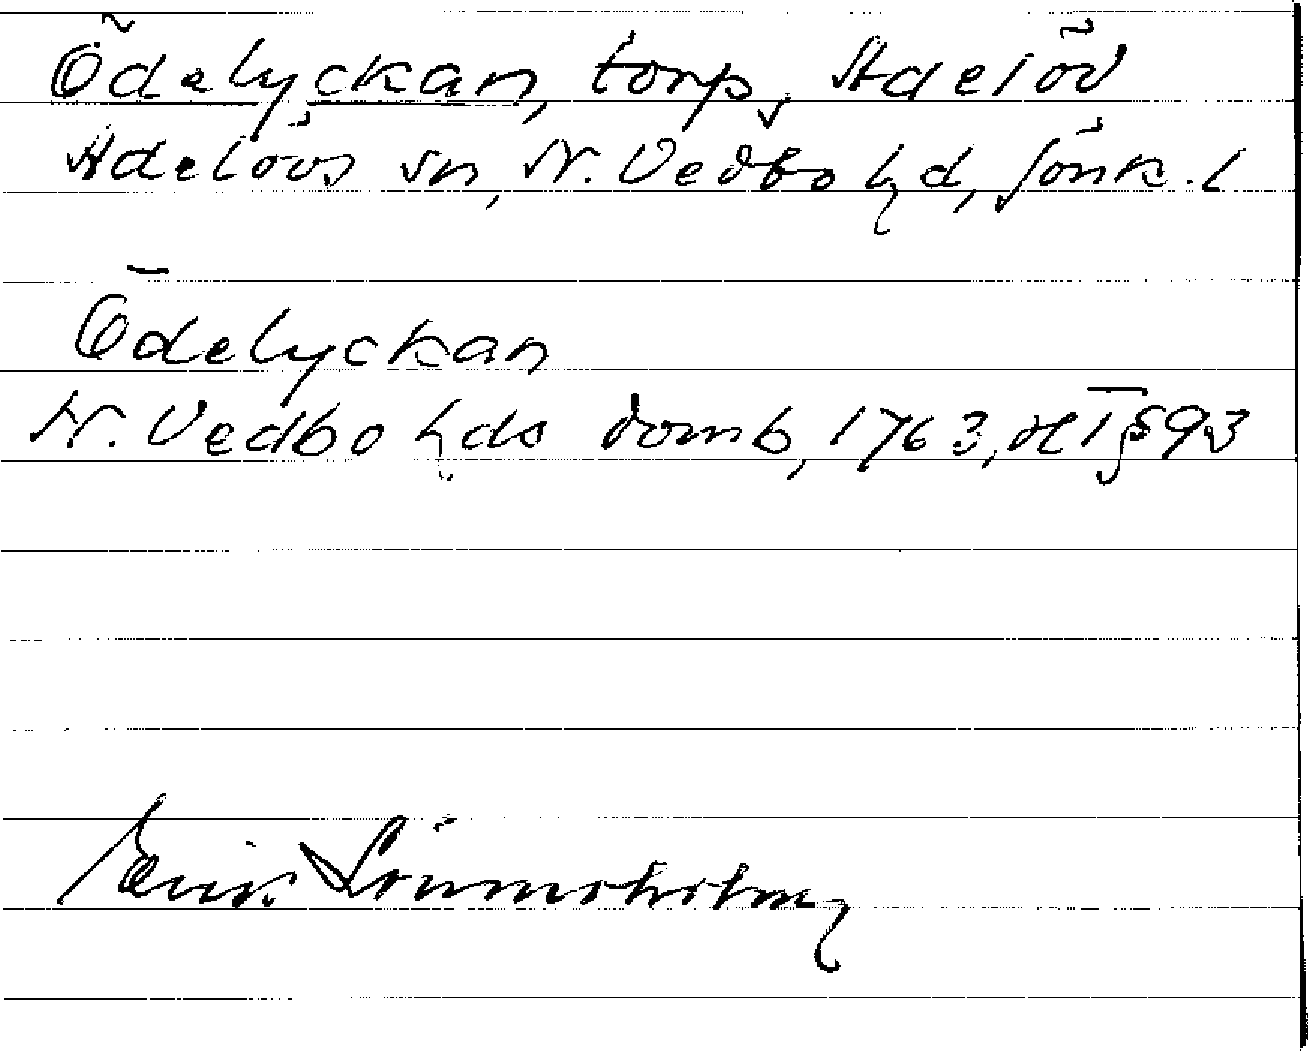 Ödelyckan, torp, Adelöv
Adelövs sn, N. Vedbo hd, Jönk. l
Ödelyckan
N. Vedbo hds domb, 1763, HT § 93
Erik